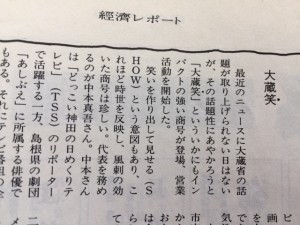 經濟レポート
大蔵笑
最近のニュースに大蔵省の話
題が取り上げられない日はない
が、その話題性にあやかろうと
「大蔵笑」といういかにもイン
パクトの強い商号が登場、営業
活動を開始した。
笑いを作り出して見せる（S
HOW）という意図もあり、こ
れほど時世を反映し、風刺の効
いた商号は珍しい。代表を務め
るのが中本真吾さん。中本さん
は「どっこい神田の日めくりテ
レビ」（TSS）のリポーター
で活躍する一方、島根県の劇団
「あしぶえ」に所属する俳優で
もある。それにテレビ番組の